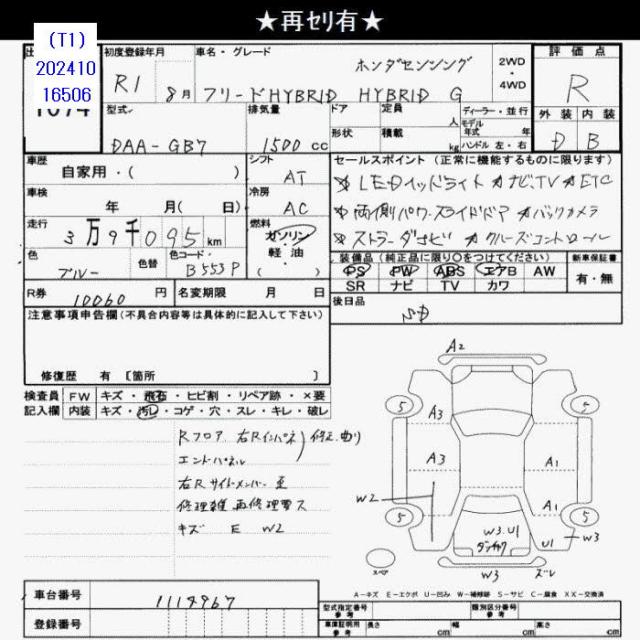 ★再ｾﾘ有★
(T1)
202410
16506
初度登録年月
R1 8月
車名・グレード
ホンダセンシング
フリードHYBRID HYBRID G
2WD
・
4WD
評価点
R
外装 内装
D B
型式
DAA-GB7
排気量
1500 cc
ドア
形状
定員
人
積載
kg
ディーラー・並行
モデル
年式 年
ハンドル 左・右
車歴
自家用・( )
シフト
AT
セールスポイント (正常に機能するものに限ります)
LEDヘッドライト ナビTV ETC
車検
年 月( 日)
冷房
AC
両側パワースライドドア バックカメラ
走行
3万9千095km
燃料
ガソリン
・
軽油
・
( )
クルーズコントロール
色
ブルー
色替
色コード・
B553P
装備品 (純正品に限り○をつけてください)
PS PW ABS エアB AW
SR ナビ TV カワ
新車保証書
有・無
R券
10060 円
名変期限 月 日
後日品
注意事項申告欄(不具合内容等は具体的に記入して下さい)
修復歴 有 [箇所 ]
検査員
記入欄
FW キズ・飛石・ヒビ割・リペア跡・×要
内装 キズ・汚レ・コゲ・穴・スレ・キレ・破レ
Rフロア 右Rインパネ 修正 曲り
エンドパネル
右Rサイドメンバー
修理雑 再修理要ス
キズ E W2
A2
5
5
A3
A3
A1
W2
A1
5
5
W3 U1
U1
W3
W3
ズレ
スペア
A-キズ E-エクボ U-凹み W-補修跡 S-サビ C-腐食 XX-交換済
車台番号
1114967
登録番号
型式指定番号
参考
類別区分番号
参考
車庫証明用
参考
長さ cm
幅 cm
高さ cm